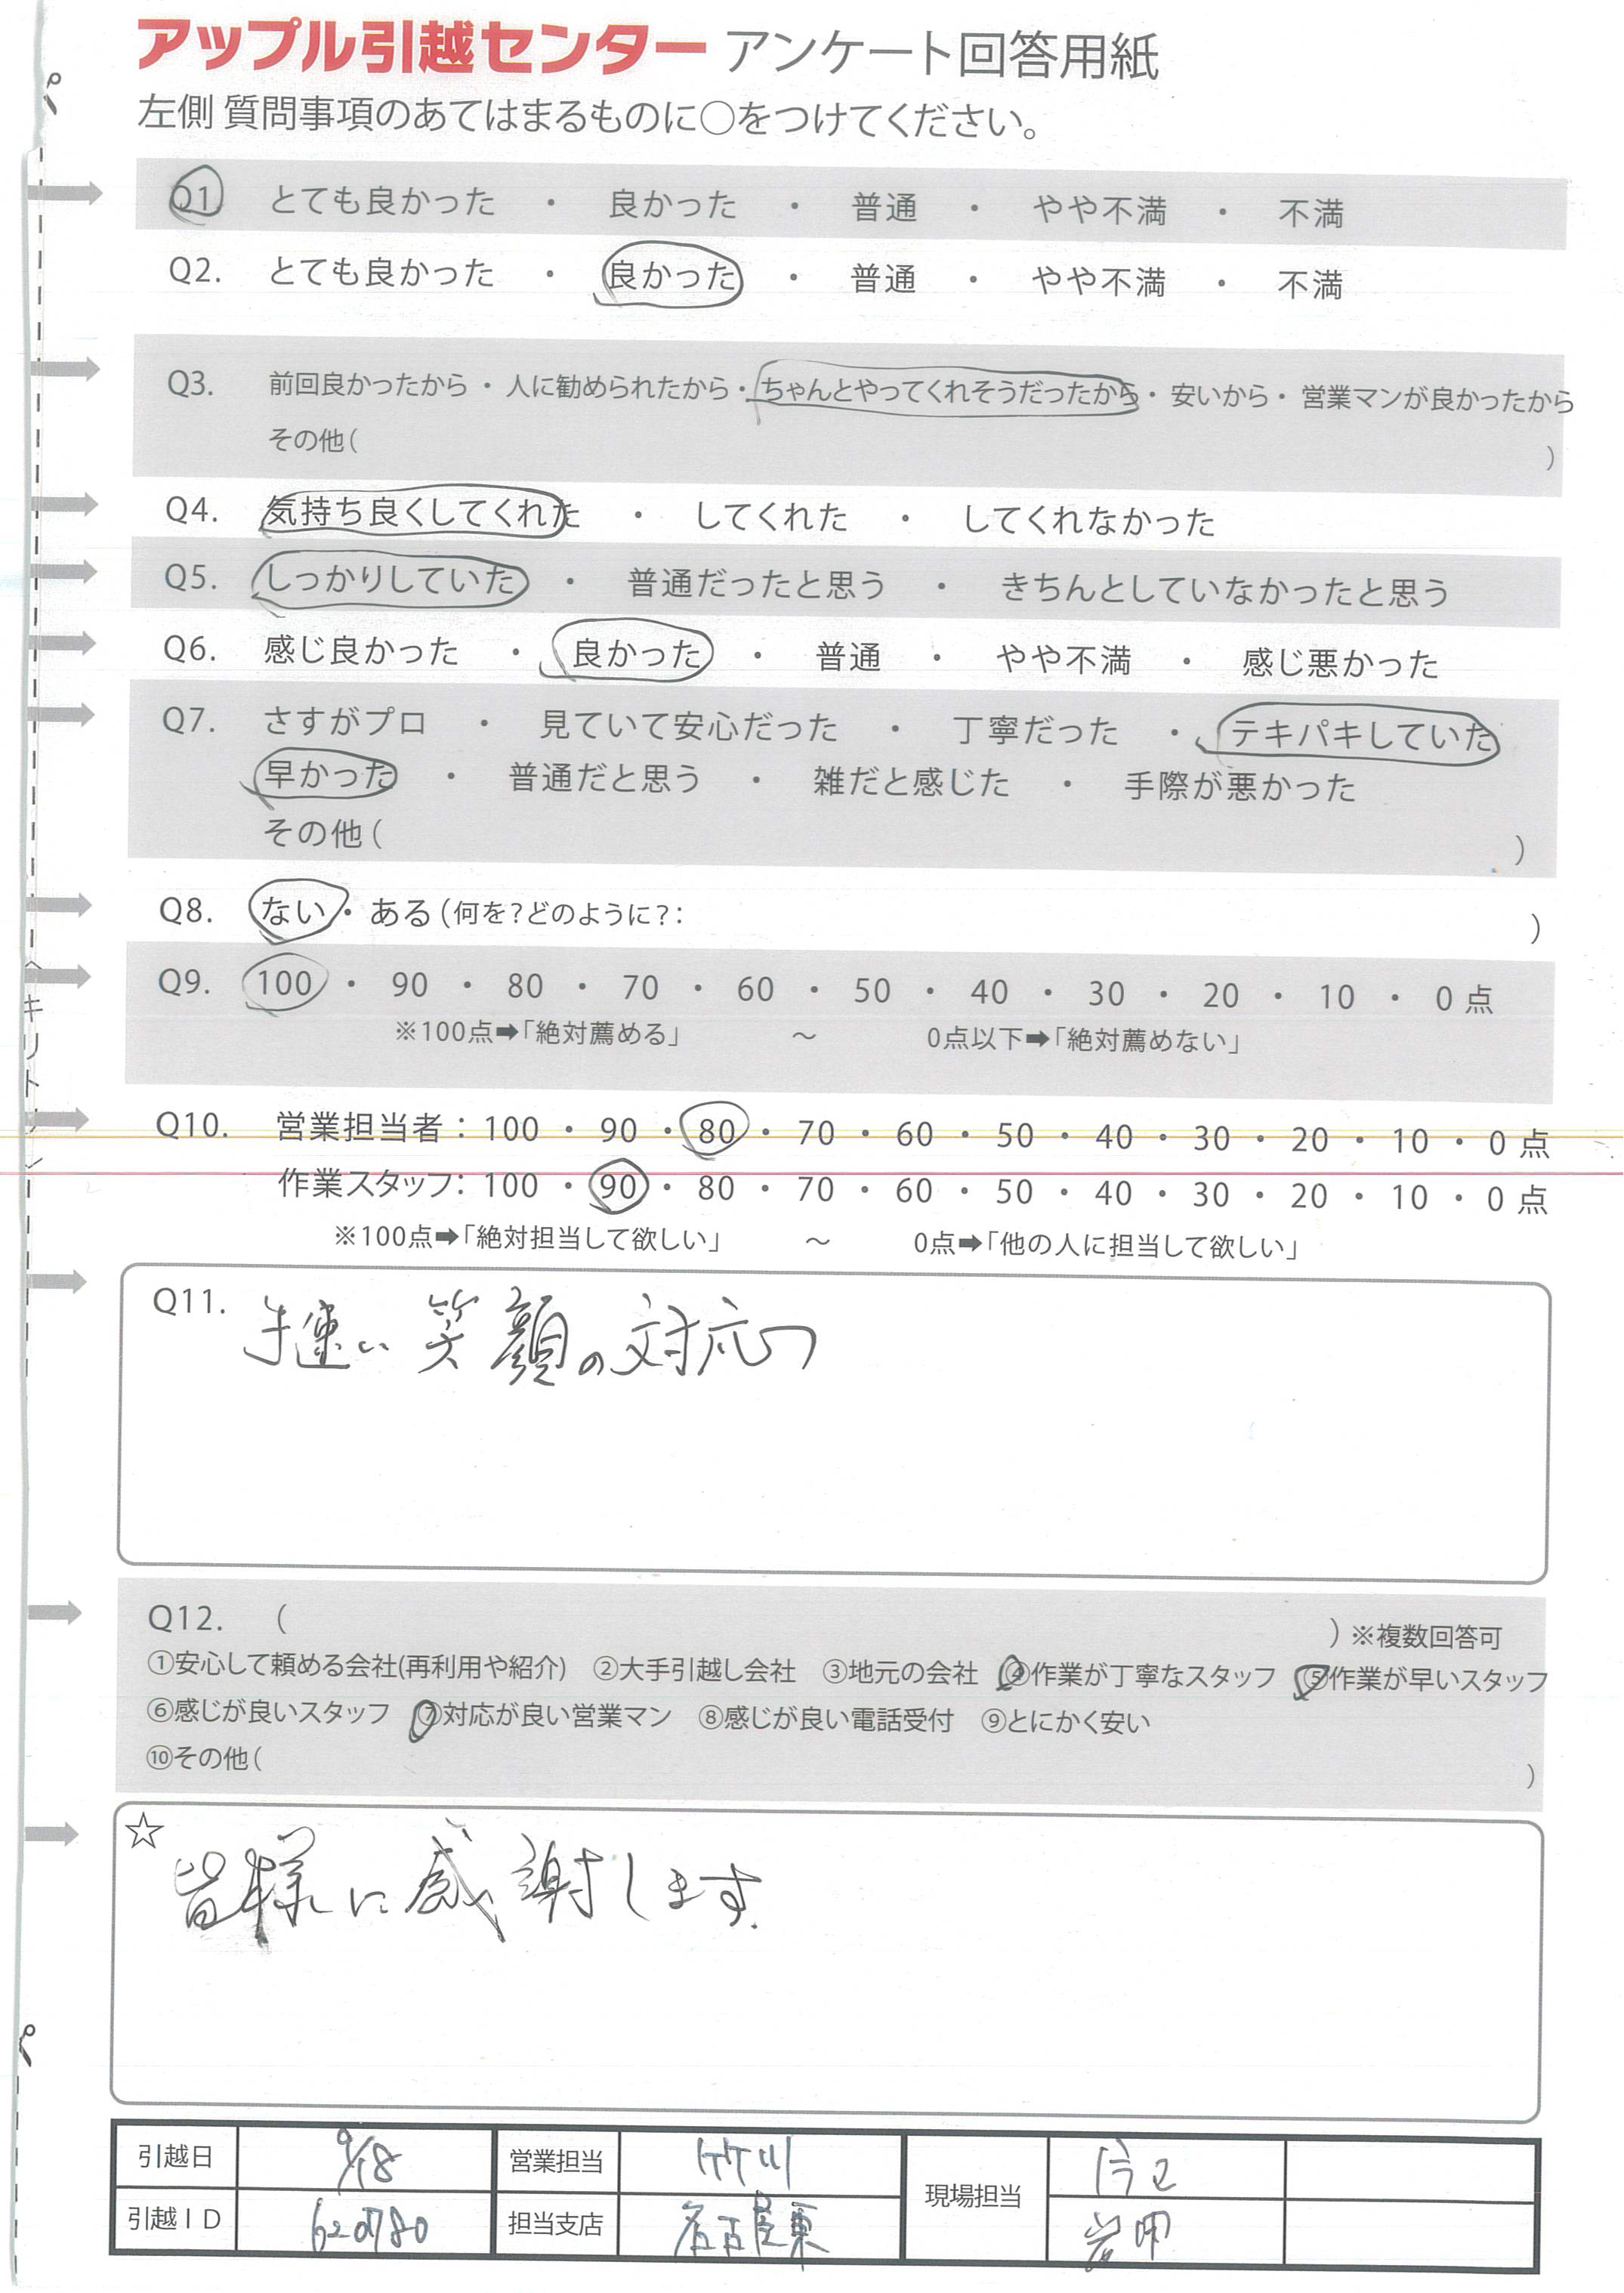 アップル引越センター アンケート回答用紙
左側 質問事項のあてはまるものに○をつけてください。
Q1 とても良かった ・ 良かった ・ 普通 ・ やや不満 ・ 不満
Q2. とても良かった ・ 良かった ・ 普通 ・ やや不満 ・ 不満
Q3. 前回良かったから ・ 人に勧められたから ・ ちゃんとやってくれそうだったから ・ 安いから ・ 営業マンが良かったから
その他( )
Q4. 気持ち良くしてくれた ・ してくれた ・ してくれなかった
Q5. しっかりしていた ・ 普通だったと思う ・ きちんとしていなかったと思う
Q6. 感じ良かった ・ 良かった ・ 普通 ・ やや不満 ・ 感じ悪かった
Q7. さすがプロ ・ 見ていて安心だった ・ 丁寧だった ・ テキパキしていた
早かった ・ 普通だと思う ・ 雑だと感じた ・ 手際が悪かった
その他( )
Q8. ない ・ ある(何を?どのように?: )
Q9. 100 ・ 90 ・ 80 ・ 70 ・ 60 ・ 50 ・ 40 ・ 30 ・ 20 ・ 10 ・ 0 点
※100点➡「絶対薦める」 ～ 0点以下➡「絶対薦めない」
Q10. 営業担当者：100 ・ 90 ・ 80 ・ 70 ・ 60 ・ 50 ・ 40 ・ 30 ・ 20 ・ 10 ・ 0 点
作業スタッフ：100 ・ 90 ・ 80 ・ 70 ・ 60 ・ 50 ・ 40 ・ 30 ・ 20 ・ 10 ・ 0 点
※100点➡「絶対担当して欲しい」 ～ 0点➡「他の人に担当して欲しい」
Q11. 手速い 笑顔の対応
Q12. ( ) ※複数回答可
①安心して頼める会社(再利用や紹介) ②大手引越し会社 ③地元の会社 ④作業が丁寧なスタッフ ⑤作業が早いスタッフ
⑥感じが良いスタッフ ⑦対応が良い営業マン ⑧感じが良い電話受付 ⑨とにかく安い
⑩その他( )
☆ 皆様に感謝します.
引越日 9/18 営業担当 竹川 現場担当
引越ＩＤ 担当支店 名古屋東
キリトリ